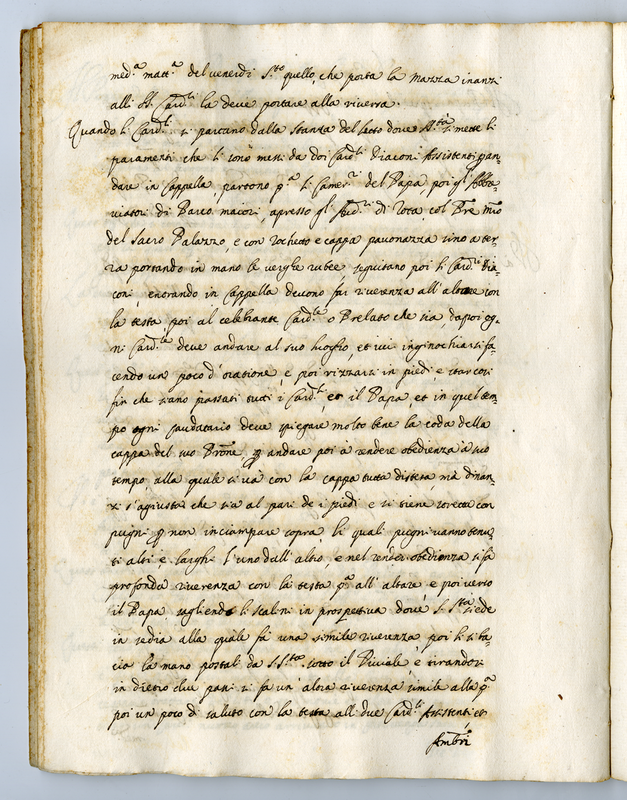 med.ª matt.ª del venerdi S.to quello, che porta la mazza inanzi
alli SS. Card.li la deve portare alla riversa.
Quando li Card.li si partano dalla stanza del letto dove S. S.tà si mette li
paramenti che li sono messi da doi Card.li Diaconi Assistenti p an-
dare in Cappella, partono p.ª li Camer.ri del Papa, poi gl' Abbre-
viatori di Parco maiori, apresso gl' Aud.ri di Rota, col P're M'ro
del Sacro Palazzo, e con rochetto e cappa pavonazza sino a ter-
ra portando in mano le verghe rubee, seguitano poi li Card.li Dia-
coni, entrando in Cappella devono far riverenza all' altare con
la testa, poi al celebrante Card.le o Prelato che sia, dapoi og-
ni Card.le deve andare al suo luogho, et ivi inginochiarsi fa-
cendo un poco d'oratione, e poi rizzarsi in piedi, e star così
fin che siano passati tutti i Card.li et il Papa, et in quel tem-
po ogni caudatario deve spiegare molto bene la coda della
cappa del suo P'rone, p andare poi à rendere obedienza à suo
tempo, alla quale si và con la cappa tutta distesa, mà dinan-
zi s'agiusta che sia al pari de i piedi e si tiene con
pugni p non inciampare sopra li quali pugni vanno tenu-
ti alti e larghi l'uno dall' altro, e nel render obedienza si fà
profonda riverenza con la testa p.ª all' altare e poi verso
il Papa, sagliendo li scalini in prospettiva dove S. S.tà siede
in sedia alla quale fà una simile riverenza, poi li si ba-
cia la mano postali da S. S.tà sotto il Piviale, e tirandosi
in dietro due passi si fa un' altra riverenza simile alla p.ª
poi un poco di saluto con la testa alli due Card.li Assistenti, et
Amb'ri